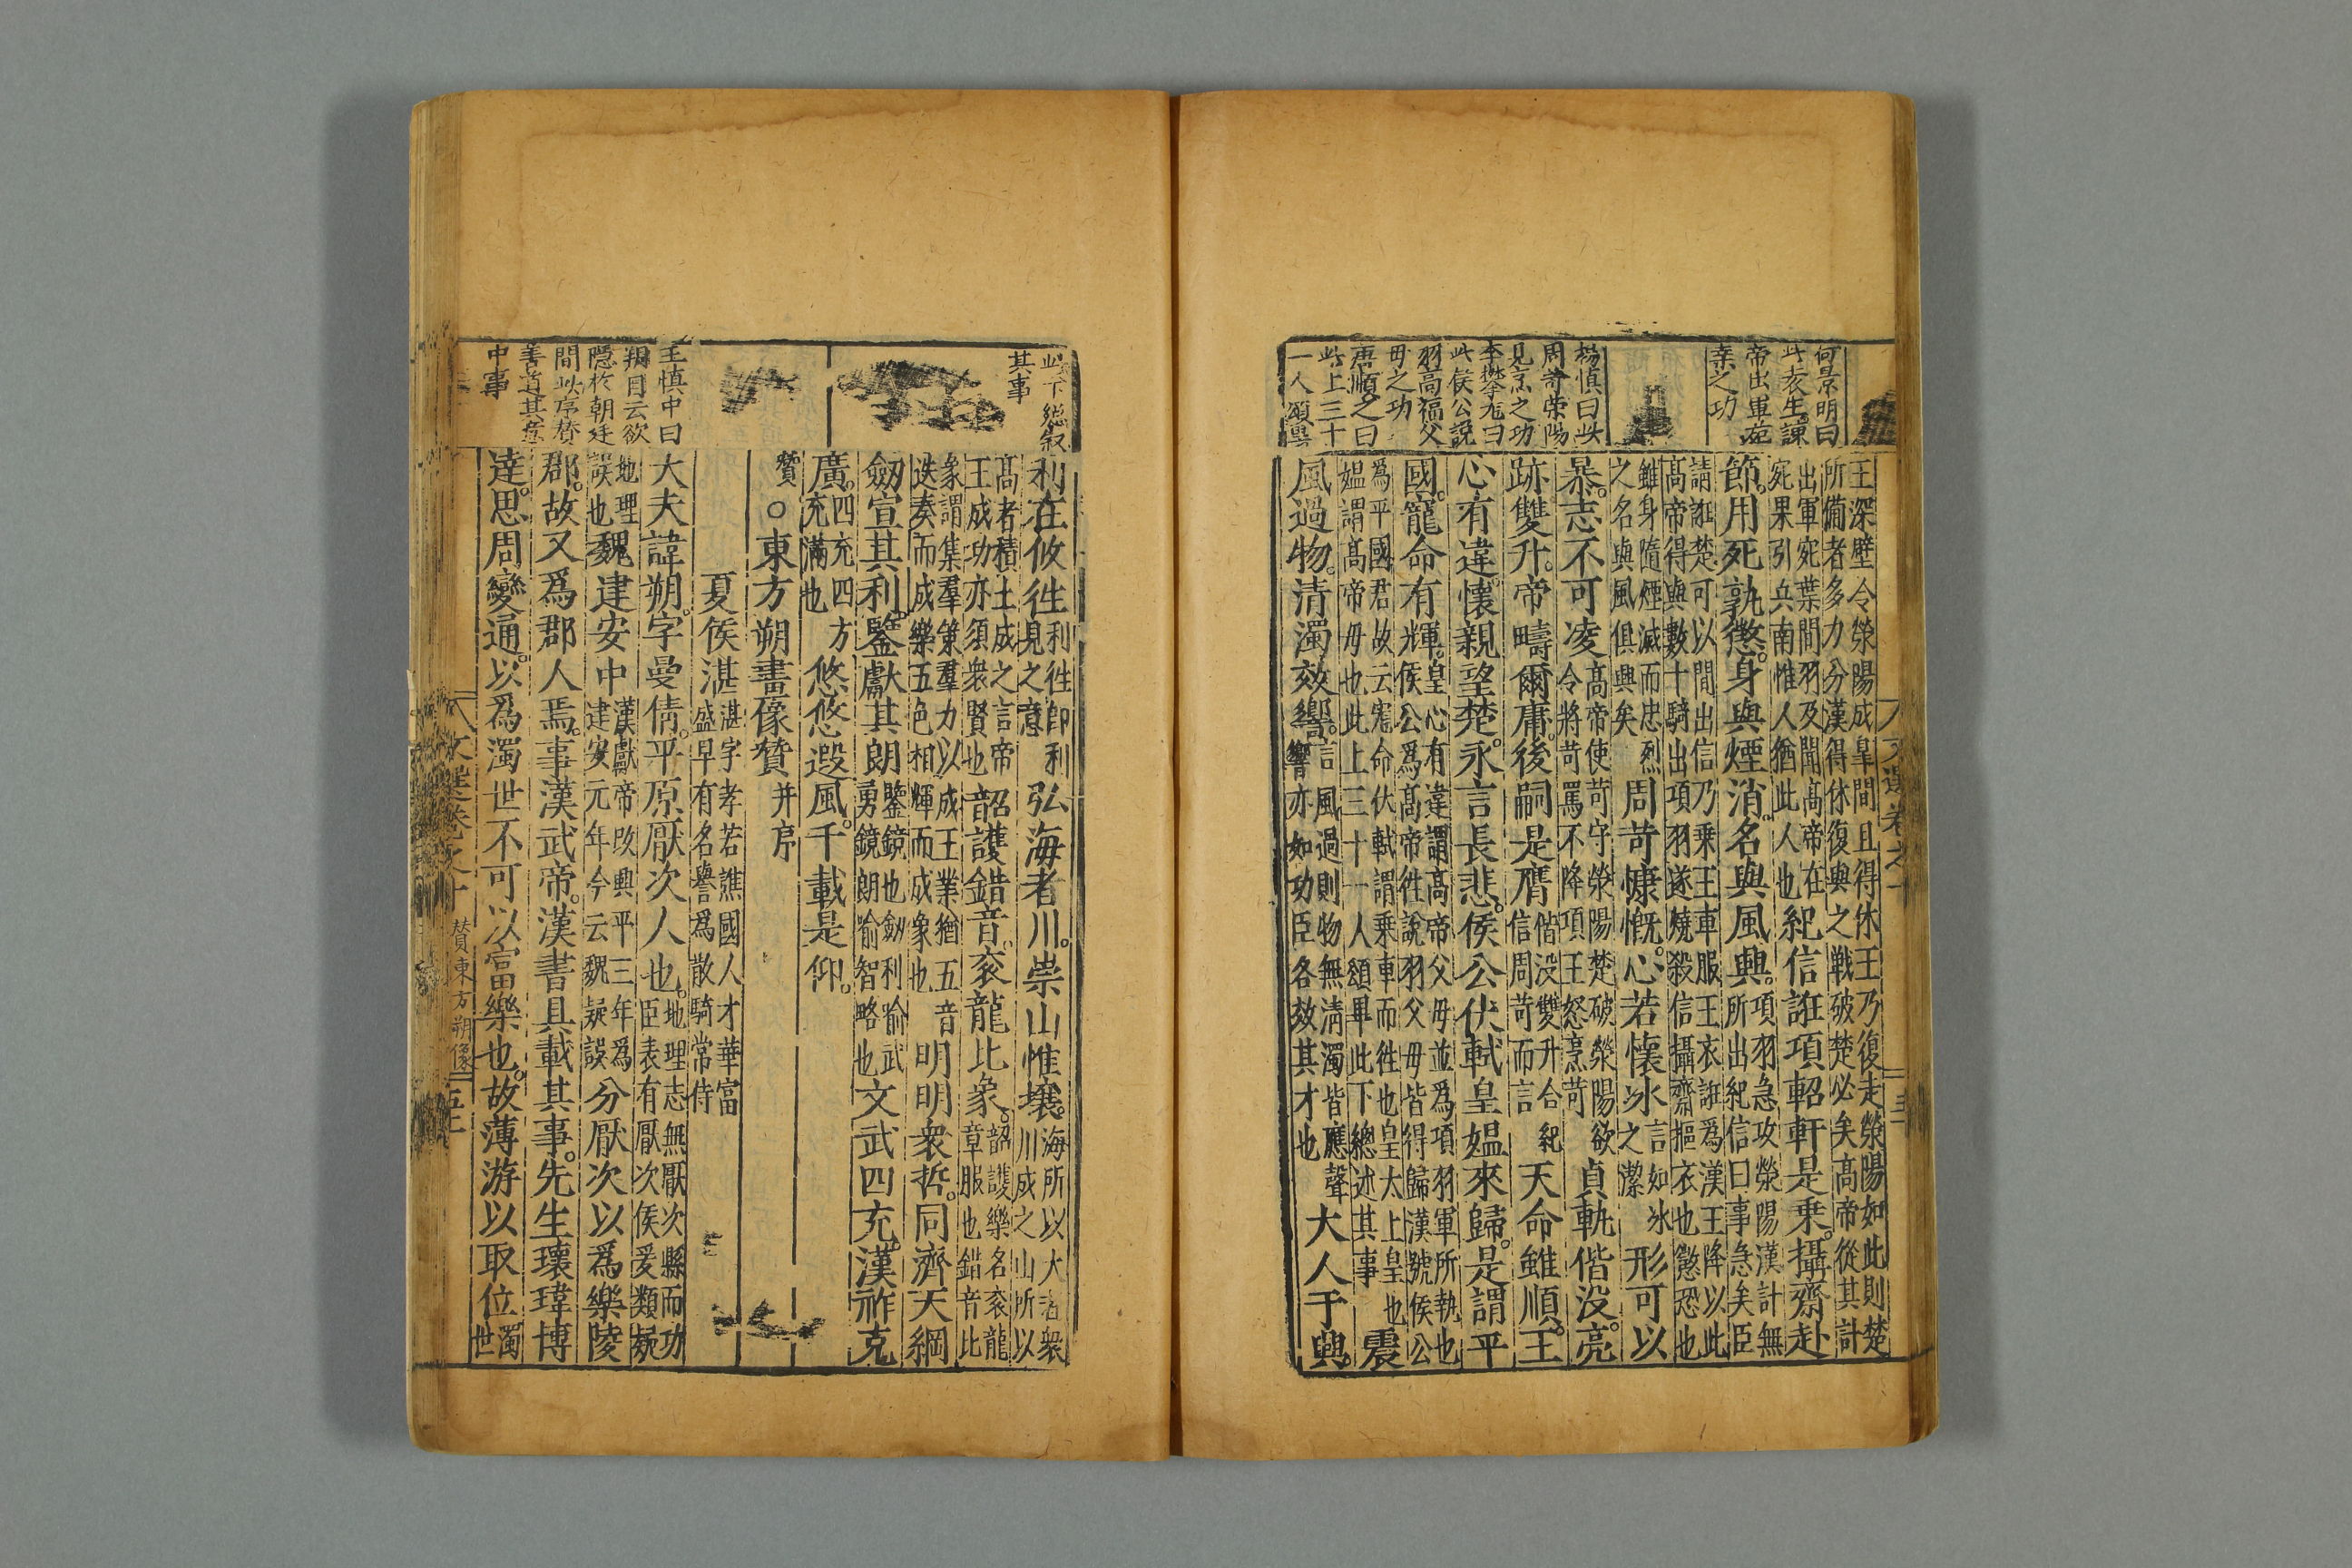 何景明曰
此袁生諫
帝出軍菀
葉之功
楊慎曰此
周苛榮陽
見烹之功
李攀龙曰
此侯公説
羽髙福父
毋之功
唐順之曰
此上三十
一人頌畢
王深壁令滎陽成皐間且得休王乃復走滎陽如此則楚
所備者多力分漢得休復與之戰破楚必矣髙帝從其計
出軍宛葉間羽及聞髙帝在
宛果引兵南惟人猶此人也
紀信誑項軺軒是乗。攝齋赴
節。用死孰懲。身與煙消。名與風興。
項羽急攻滎陽漢計無
所出紀信曰事急矣臣
請誑楚可以間出信乃乗王車服王衣誑爲漢王降以此
髙帝得與數十騎出項羽遂燒殺信攝齋摳衣也懲恐也
雖身隨煙滅而忠烈
之名與風俱興矣
周苛慷慨。心若懷冰
言如冰
之潔
形可以
暴。志不可凌
髙帝使苛守滎陽楚破滎陽欲
令將苛罵不降項王怒烹苛
貞軌偕没。亮
跡雙升。帝疇爾庸。後嗣是膺
偕没雙升合紀
信周苛而言
天命雖順。王
心有違。懷親望楚。永言長悲。侯公伏軾皇媼來歸。是謂平
國。寵命有輝。
皇心有違謂髙帝父毋並為項羽軍所執也
侯公爲髙帝徃說羽父毋皆得歸漢號侯公
為平國君故云寵命伏軾謂乗車而徃也皇大上皇也
媪謂髙帝毋也此上三十一人頌畢此下總述其事
震
風過物。清濁效響。
言風過則物無清濁皆應聲
響亦如功臣各效其才也
大人于興。
此下總叙
其事
王慎中曰
朔自云欲
隱於朝廷
間此序贊
善道其意
中事
利在攸徃
利徃卽利
見之意
弘海者川。崇山惟壤。
海所以大者衆
川成之山所以
髙者積土成之言帝
王成功亦須衆賢也
韶護錯音。衮龍比象。
韶護樂名衮龍
章服也錯音比
象謂集羣策羣力以成王業猶五音
迭奏而成樂五色相輝而成象也
明明衆哲。同濟天綱
劒宣其利。鑒獻其朗
鑒鏡也劒利喻武
勇鏡朗喻智略也
文武四充。漢祚克
廣。
四充四方
充滿也
悠悠遐風。千載是仰。
贊○東方朔畫像贊并序
夏侯湛
湛字孝若譙國人才華富
盛早有名譽爲散騎常侍
大夫諱朔。字曼倩。平原厭次人也。
地理志無厭次縣而功
臣表有厭次侯爰類疑
地理
誤也
魏建安中
漢獻帝改興平三年爲
建安元年今云魏疑誤
分厭次以爲樂陵
郡。故又爲郡人焉。事漢武帝。漢書具載其事。先生瓌瑋博
達。思周變通。以爲濁世不可以富樂也。故薄游以取位。
濁
世
文選卷之十 贊東方朔像 五十一